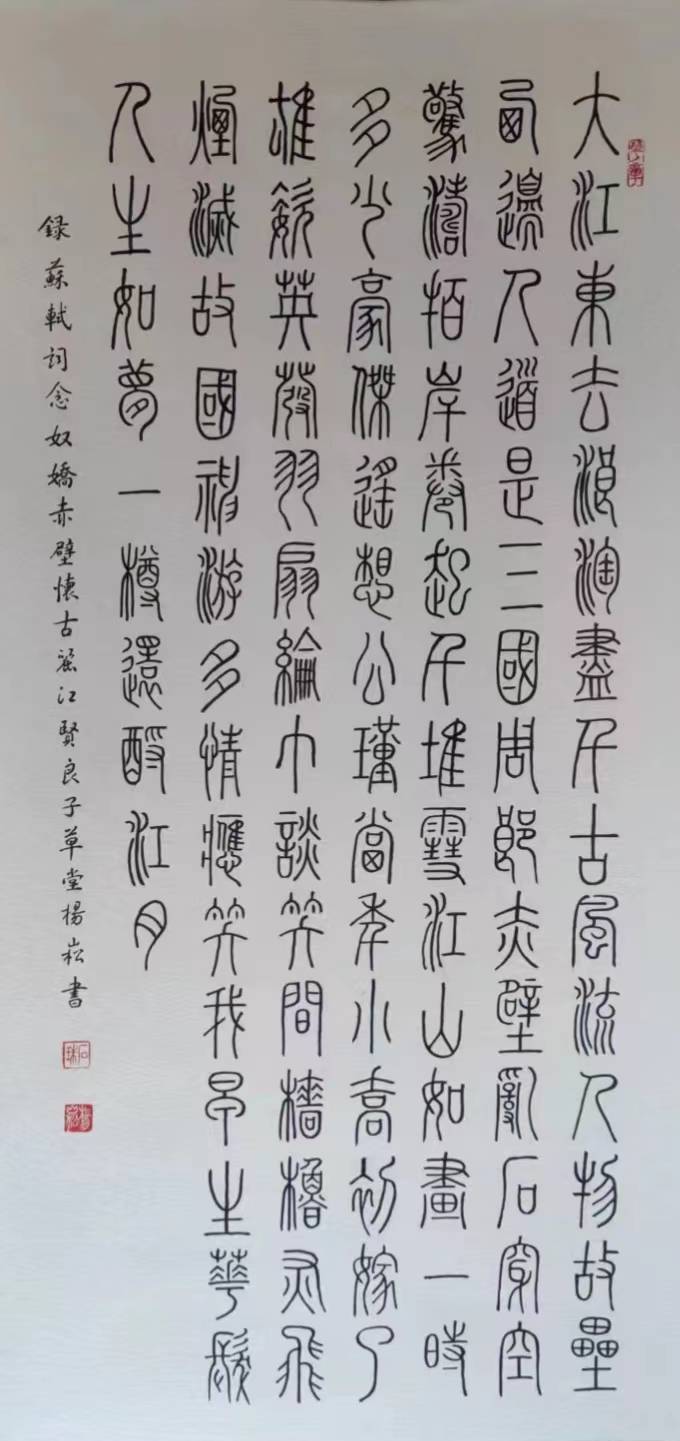 大江東去浪淘盡千古風流人物故壘
西邊人道是三國周郎赤壁亂石穿空
驚濤拍岸卷起千堆雪江山如畫一時
多少豪傑遙想公瑾當年小喬初嫁了
雄姿英發羽扇綸巾談笑間檣櫓灰飛
煙滅故國神游多情應笑我早生華髮
人生如夢一樽還酹江月
録蘇軾詞念奴嬌赤壁懷古麗江賢良子草堂楊崧書